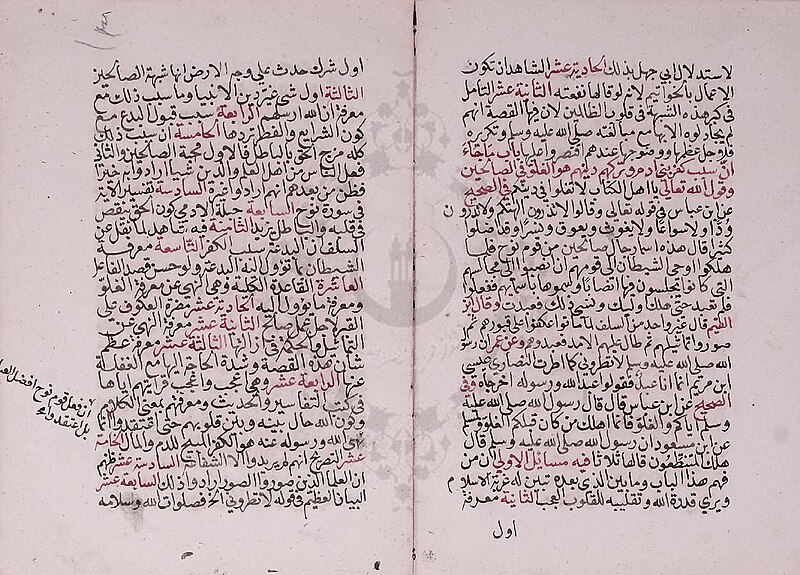 لاستدلال ابي جهل بذلك الحادية عشر الشاهد ان تكون
الاعمال بالخواتيم لانه لو قالها نفعته الثانية عشر التامل
في كبر هذه الشبهة في قلوب الظالمين لان فيها القصة انهم
لم يجادلوه الا بها مع مبالغته صلى الله عليه وسلم وتكريره
فلاجل عظمها ووضوحها عندهم اقتصروا عليها باب ما جاء
ان سبب كفر بني ادم وتركهم دينهم هو الغلو في الصالحين
وقول الله تعالى يا اهل الكتاب لا تغلوا في دينكم في الصحيح
عن ابن عباس في قوله تعالى وقالوا لا تذرون الهتكم ولا تذرون
ودا ولا سواعا ولا يغوث ويعوق ونسرا وقد اضلوا
كثيرا قال هذه اسما رجال صالحين من قوم نوح فلما
هلكوا اوحى الشيطان الى قومهم ان نصبوا الى مجالسهم
التي كانوا يجلسون فيها انصابا وسموها باسمائهم ففعلوا
فلم تعبد حتى هلك اوليك ونسي ذلك فعبدت وقال ابن
القيم قال غير واحد من السلف لما ماتوا عكفوا على قبورهم ثم
صوروا تماثيلهم ثم طال عليهم الامد فعبدوهم وعن عمر ان رسول
الله صلى الله عليه وسلم قال لا تطروني كما اطرت النصارى عيسى
ابن مريم انما انا عبد فقولوا عبد الله ورسوله اخرجاه وفي
الصحيح عن ابن عباس قال قال رسول الله صلى الله عليه
وسلم اياكم والغلو فانما اهلك من كان قبلكم الغلو ولمسلم
عن ابن مسعود ان رسول الله صلى الله عليه وسلم قال
هلك المتنطعون قالها ثلاثا فيه مسائل الاولى ان من
فهم هذا الباب وما بين الذي بعده تبين له غربة الاسلام
ويرى قدرة الله وتقليبه القلوب العجب الثانية معرفة
اول
اول شرك حدث على وجه الارض انها شبهة الصالحين
الثالثة اول شي غير دين الانبيا وما سبب ذلك مع
معرفة ان الله ارسلهم الرابعة سبب قبول البدع مع
كون الشرايع والفطر تردها الخامسة ان سبب ذلك
كله مزج الحق بالباطل فالاول محبة الصالحين والثاني
فعل الناس من اهل العلم والدين شيا ارادوا به خيرا
فظن من بعدهم انهم ارادوا غيره السادسة تفسير الاية
في سورة نوح السابعة جبلة الادمي كون الحق ينقص
في قلبه والباطل يزيد الثامنة فيه شاهد لما نقل عن
السلف ان البدعة سبب الكفر التاسعة معرفة
الشيطان بما تؤول اليه البدعة ولو حسن قصد الفاعل
العاشرة القاعدة الكلية وهي النهي عن معرفة الغلو
ومعرفة ما يؤول اليه الحادية عشر مضرة العكوف على
القبر لاجل عمل صالح الثانية عشر معرفة النهي عن
التماثيل والحكمة في ازالتها الثالثة عشر معرفة عظم
شان هذه القصة وشدة الحاجة اليها مع الغفلة
عنها الرابعة عشر وهي اعجب واعجب قرايتهم اياها
في كتب التفاسير والحديث ومعرفتهم بمعنى الكلام
وكون الله حال بينه وبين قلوبهم حتى اعتقدوا ان ما
نهى الله ورسوله عنه هو الكفر المبيح للدم والمال الخامسة
عشر التصريح انهم لم يريدوا الا الشفاعة السادسة عشر ظنهم
ان العلما الذين صوروا الصور ارادوا ذلك السابعة عشر
البيان العظيم في قوله لا تطروني الخ فصلوات الله وسلامه
ان فعل قوم نوح افضل
بل اعتقدوا